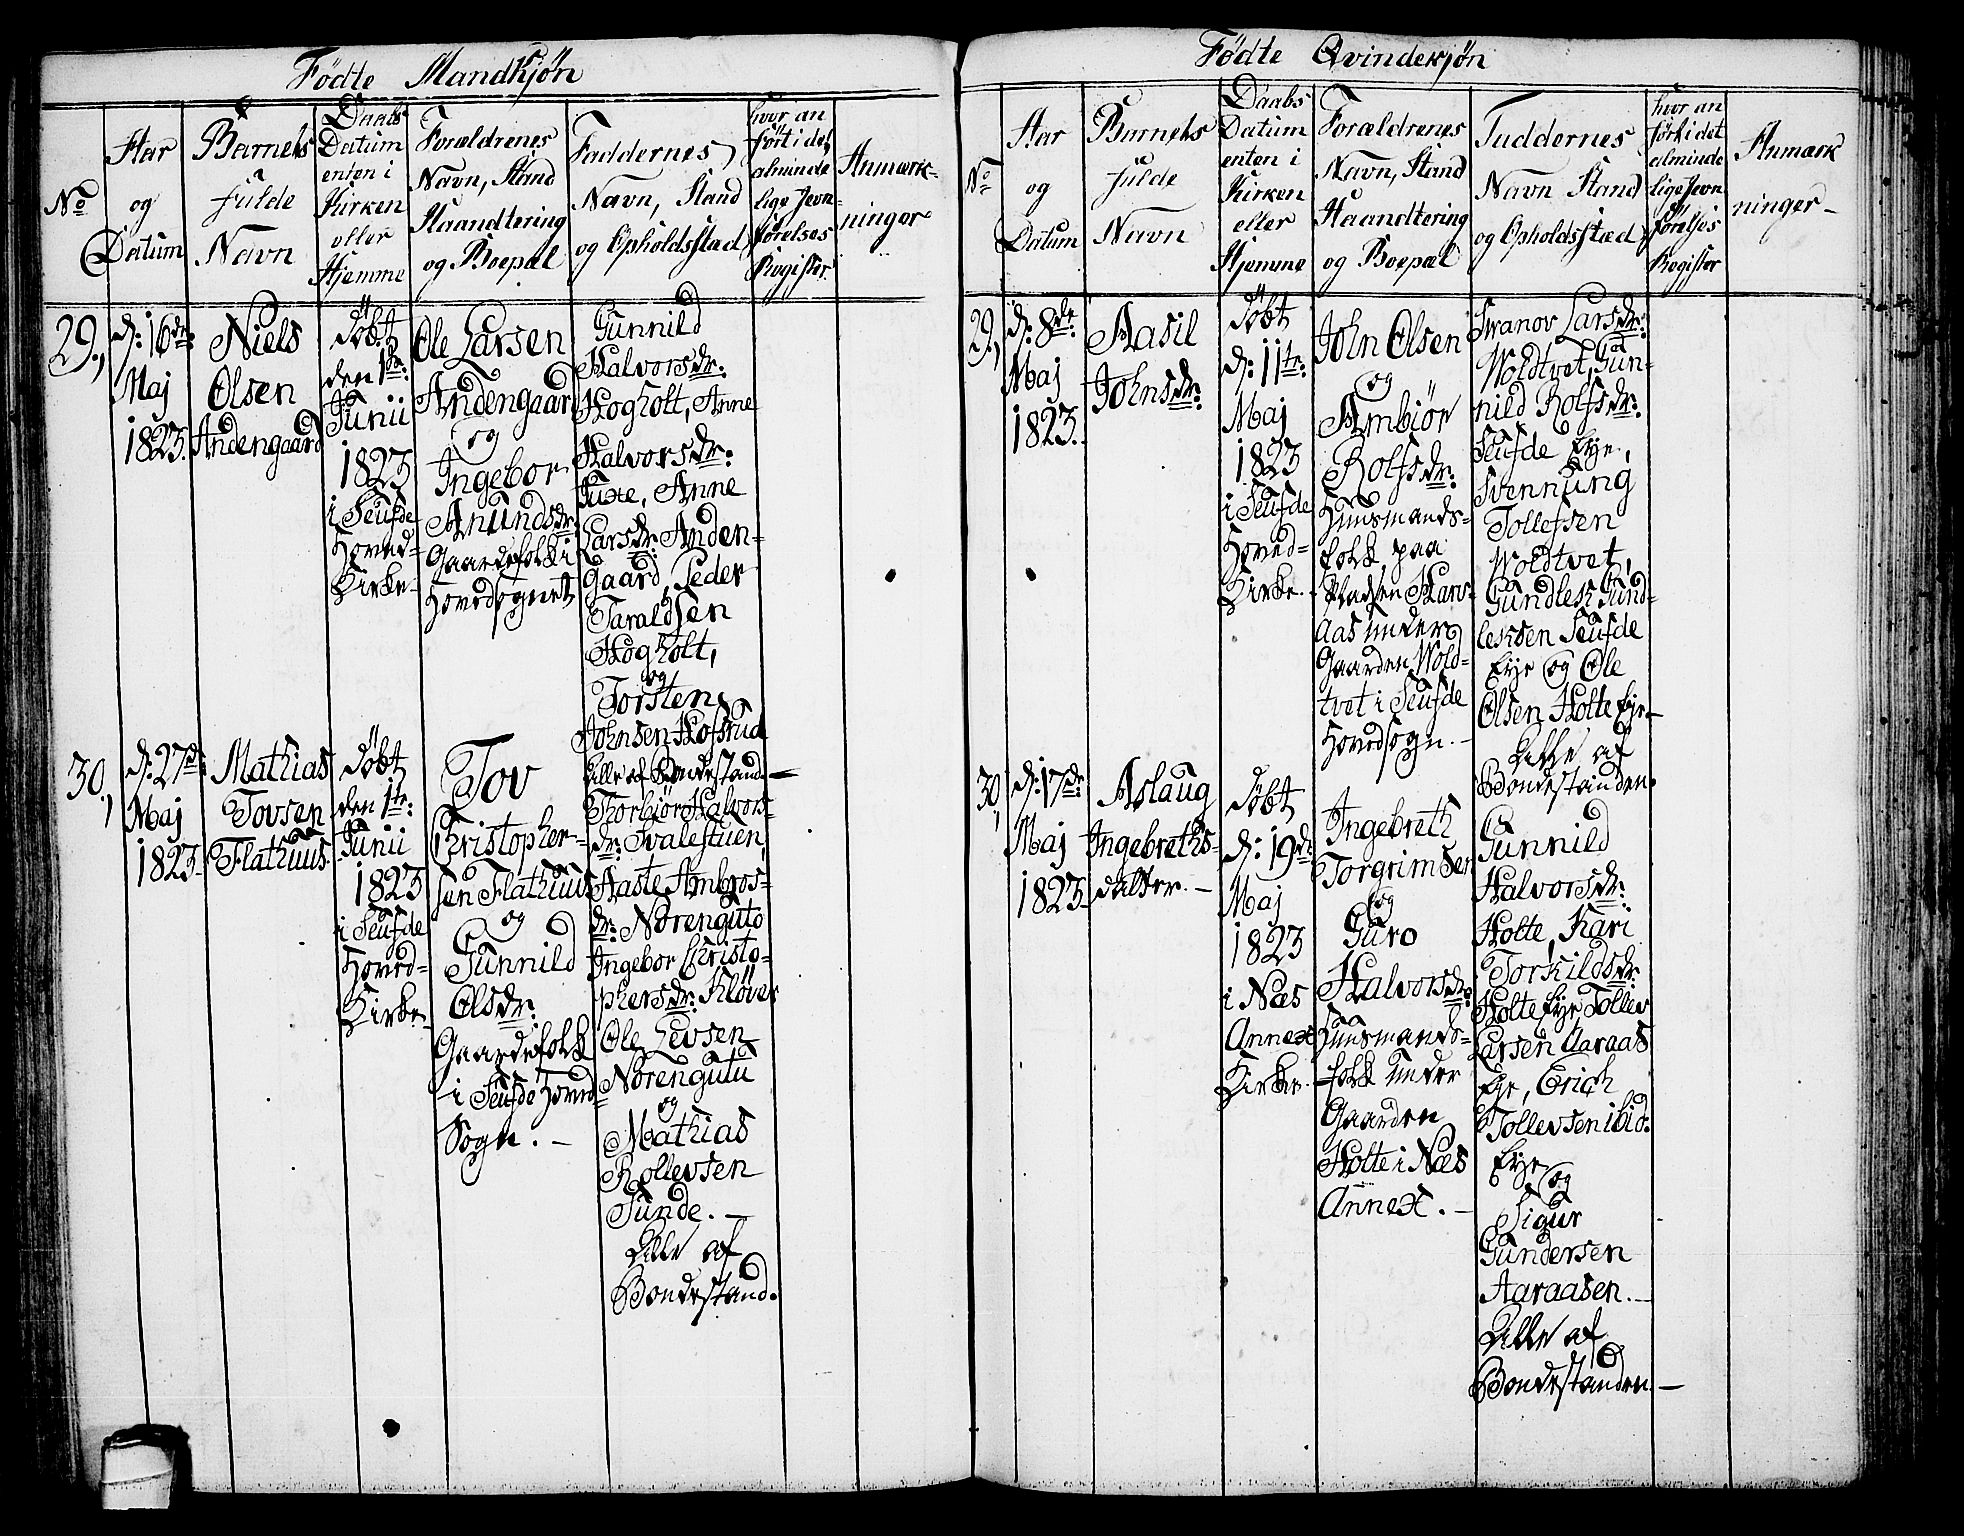 Fødte Mandkjøn
No
Aar
og
Datum
Barnets
fulde
Navn
Daabs
Datum
enten i
Kirken
eller
Hjemme
Forældrenes
Navn, Stand
Haandtering
og Boepæl
Faddernes
Navn, Stand
og Opholdsstæd
hvor an
ført i det
alminde
lige Jevn-
førelses
Register
Anmærk-
ninger
29.,
d: 16de:
Maj
1823.
Niels
Olsen
Andengaard
døbt
den 1ste
Junii
1823
i Seufde
Hoved-
Kirke-
Ole Larsen
Andengaard
og
Ingebor
Anundsdr:
Gaardefolk i
Hovedsognet
Gunnild
Halvorsdr:
Hogholt, Anne
Halvorsdr:
Tuxe, Anne
Larsdr: Anden-
gaard, Peder
Taraldsen
Hogholt,
og
Torsten
Johnsen Hofsrud
Alle af Bondestand.
30.,
d: 27de:
Maj
1823.
Mathias
Tovsen
Flathuus
døbt
den 1te:
Junii
1823
i Seufde
Hoved-
Kirke-
Tov
Christopher-
sen Flathuus
og
Gunnild
Olsdr:
Gaardefolk
i Seufde Hoved
Sogn. -
Thorbiør Halvors-
dr: Svalestuen,
Aaste Ambros-
dr: Norengute
Ingebor Christo-
phersdr: Kløver
Ole Levsen
Norengutu
og
Mathias
Rollevsen
Sunde. -
Alle af
Bondestand.
Fødte Qvindekjøn
No
Aar
og
Datum
Barnets
fulde
Navn
Daabs
Datum
enten i
Kirken
eller
Hjemme
Forældrenes
Navn, Stand
Haandtering
og Boepæl
Faddernes
Navn Stand
og Opholdsstæd
hvor an
ført i det
alminde
lige Jevn
førelses
Register
Anmærk
ninger-
29.,
d: 8de:
Maj
1823.
Aasil
Johnsdr:
døbt
d: 11te:
Maj
1823
i Seufde
Hoved-
Kirke.
John Olsen
og
Ambiør
Rolfsdr:
Huusmands-
folk paa
Pladsen Hans-
aas under
Gaarden Wold-
tvet i Seufde
Hovedsogn. -
Svanov Larsdr:
Woldtvet, Gun-
nild Rolfsdr:
Seufde Eje,
Svennung
Tollefsen
Woldtvet,
Gundlesk Gund-
lesksen Seufde
Eje og Ole
Olsen Holte Eje-
Alle af
Bondestanden.
30.,
d: 17de:
Maj
1823.
Aslaug
Ingebreths-
datter. -
døbt
d: 19de
Maj
1823
i Næs
Annex
Kirke.
Ingebreth
Torgrimsen
og
Guro
Halvorsdr:
Huusmands-
folk under
Gaarden
Holte i Næs
Annex. -
Gunnild
Halvorsdr:
Holte, Kari
Torkildsdr:
Holte Eje Tollev
Larsen Aaraas
Eje, Erich
Tollevsen ibid:
Eje og
Sigur
Gundersen
Aaraasen. -
Alle af
Bondestanden. -